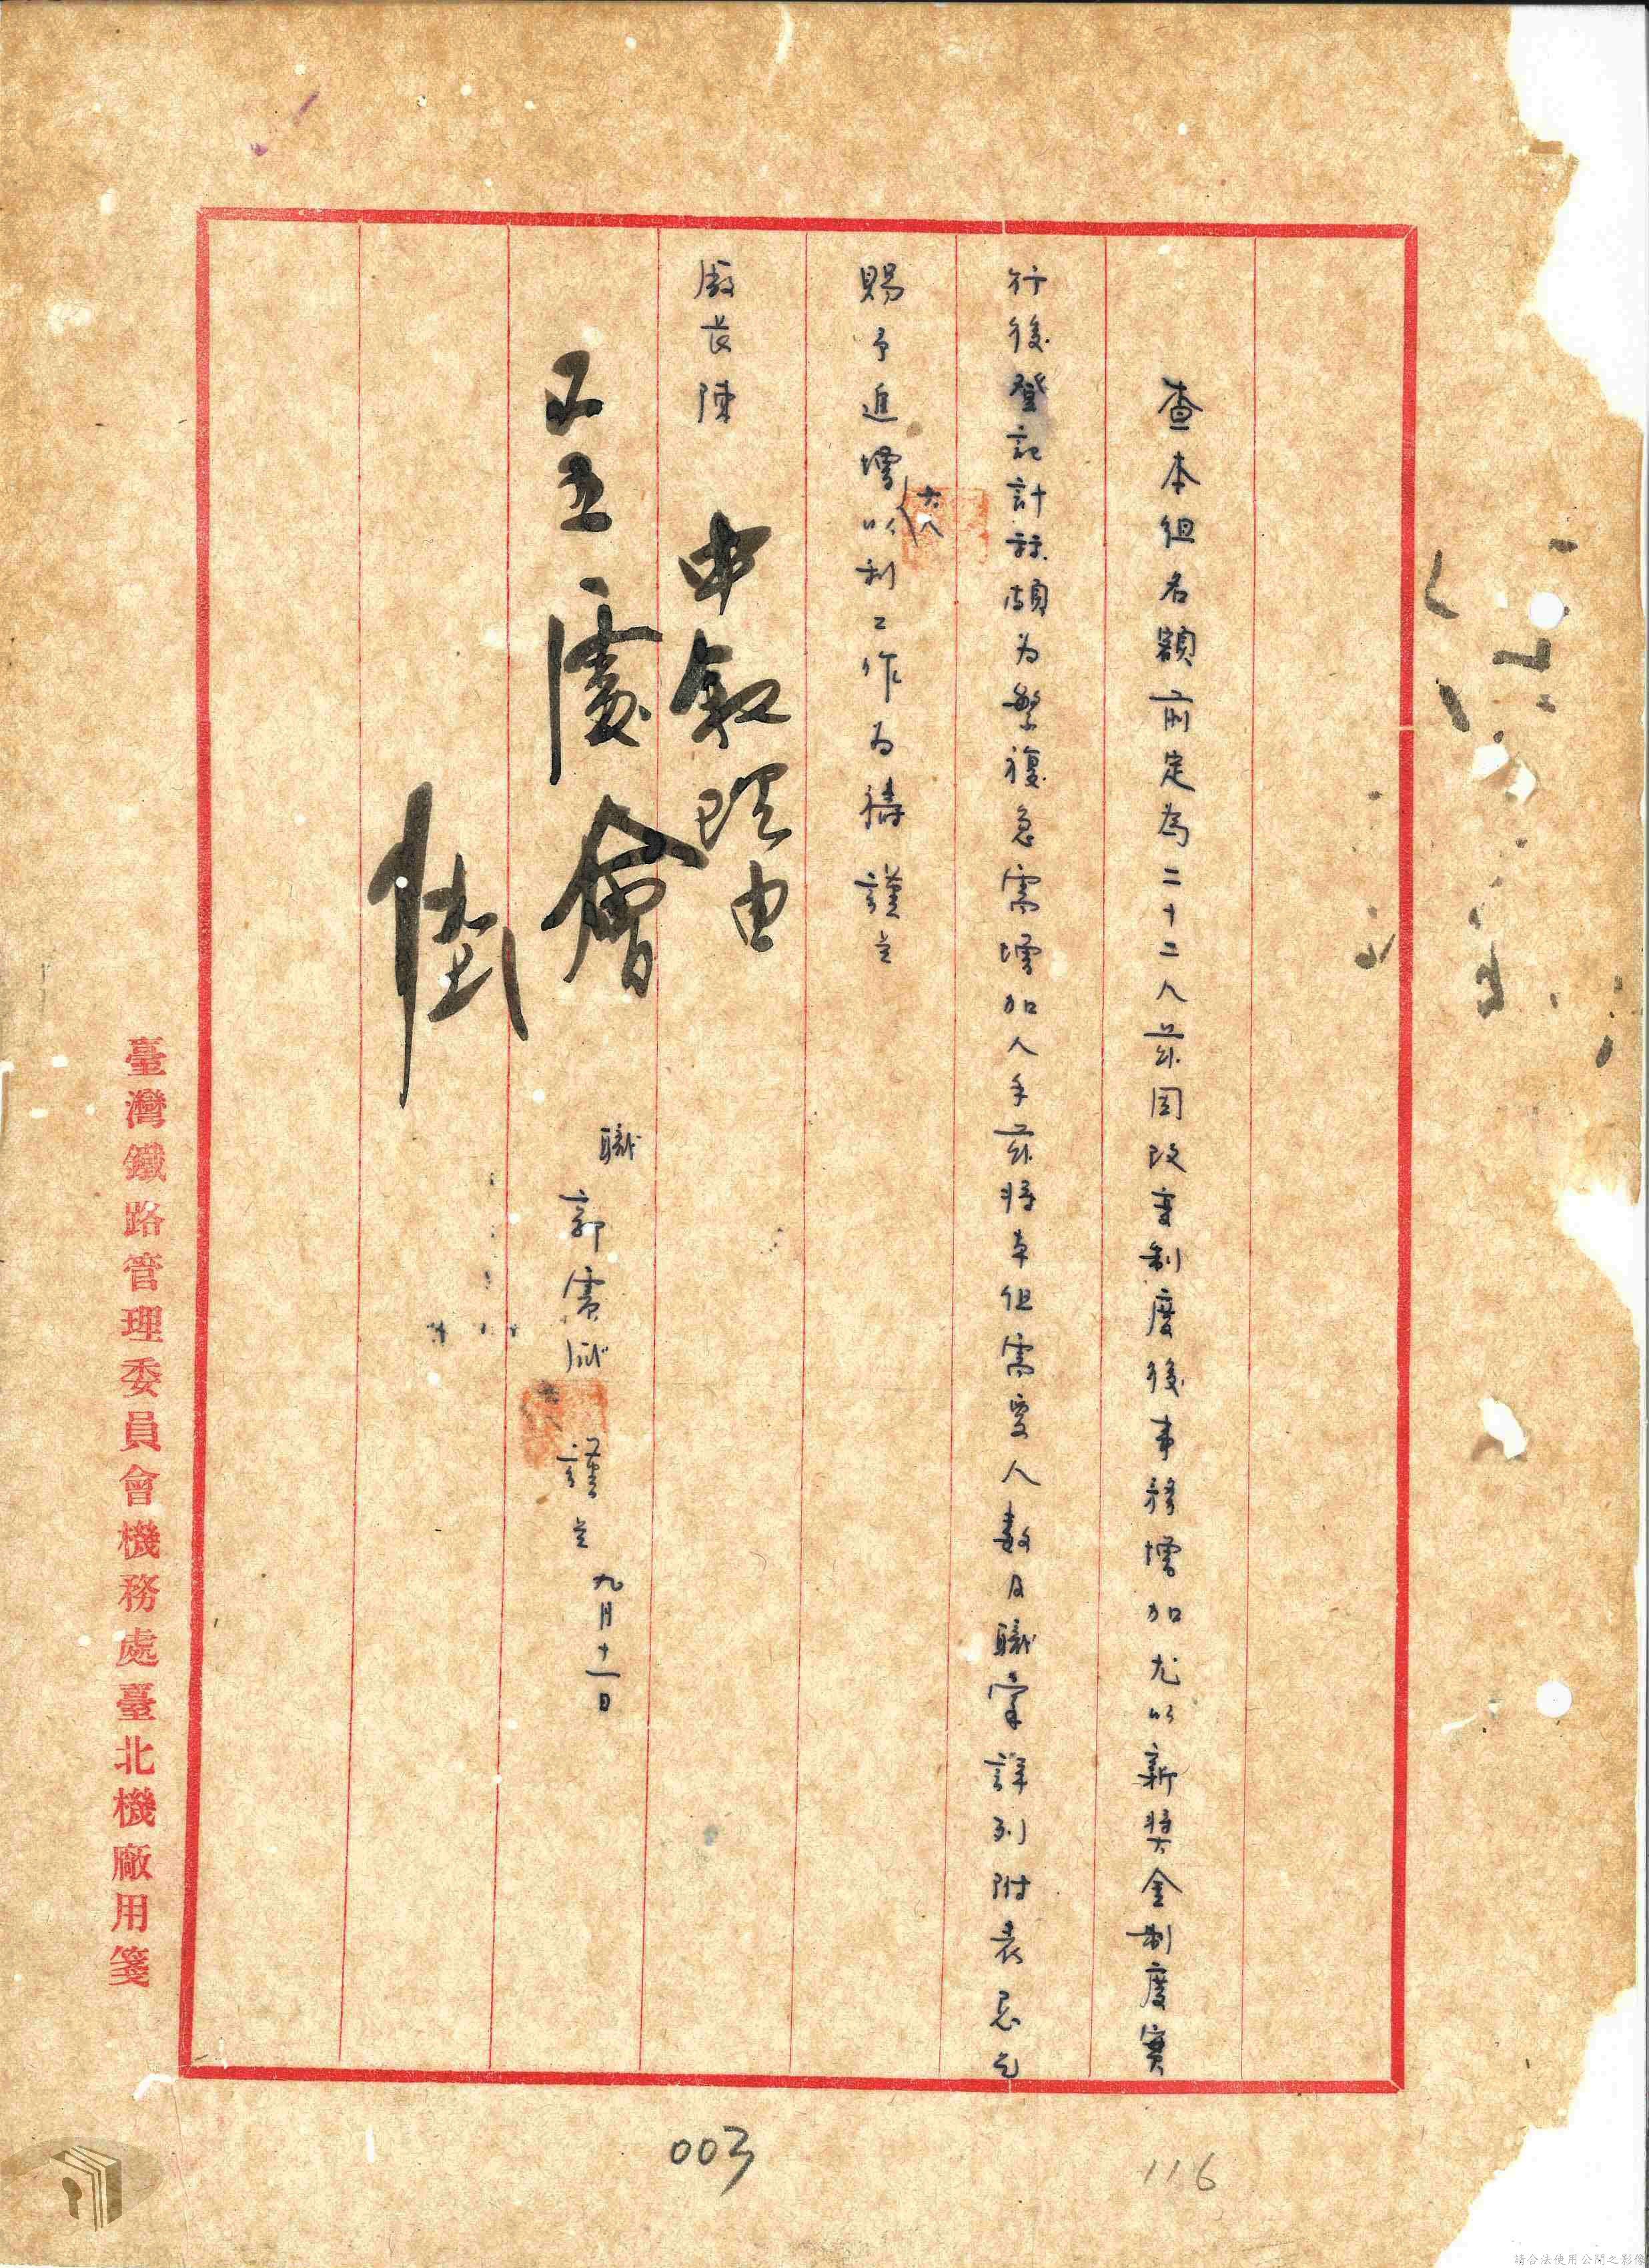 查本組名額前定為二十二人茲因改變制度後事務增加尤以新奬金制度實
行後登記計祘頗为繁複急需增加人手茲将本組需要人数及職掌詳列附表恳乞
賜予追增以利工作为禱 謹呈
六人
廠長陳
職
郭
謹呈
九月十一日
申叙理由
處會
臺灣鐵路管理委員會機務處臺北機廠用箋
003
116
請合法使用公開之影像